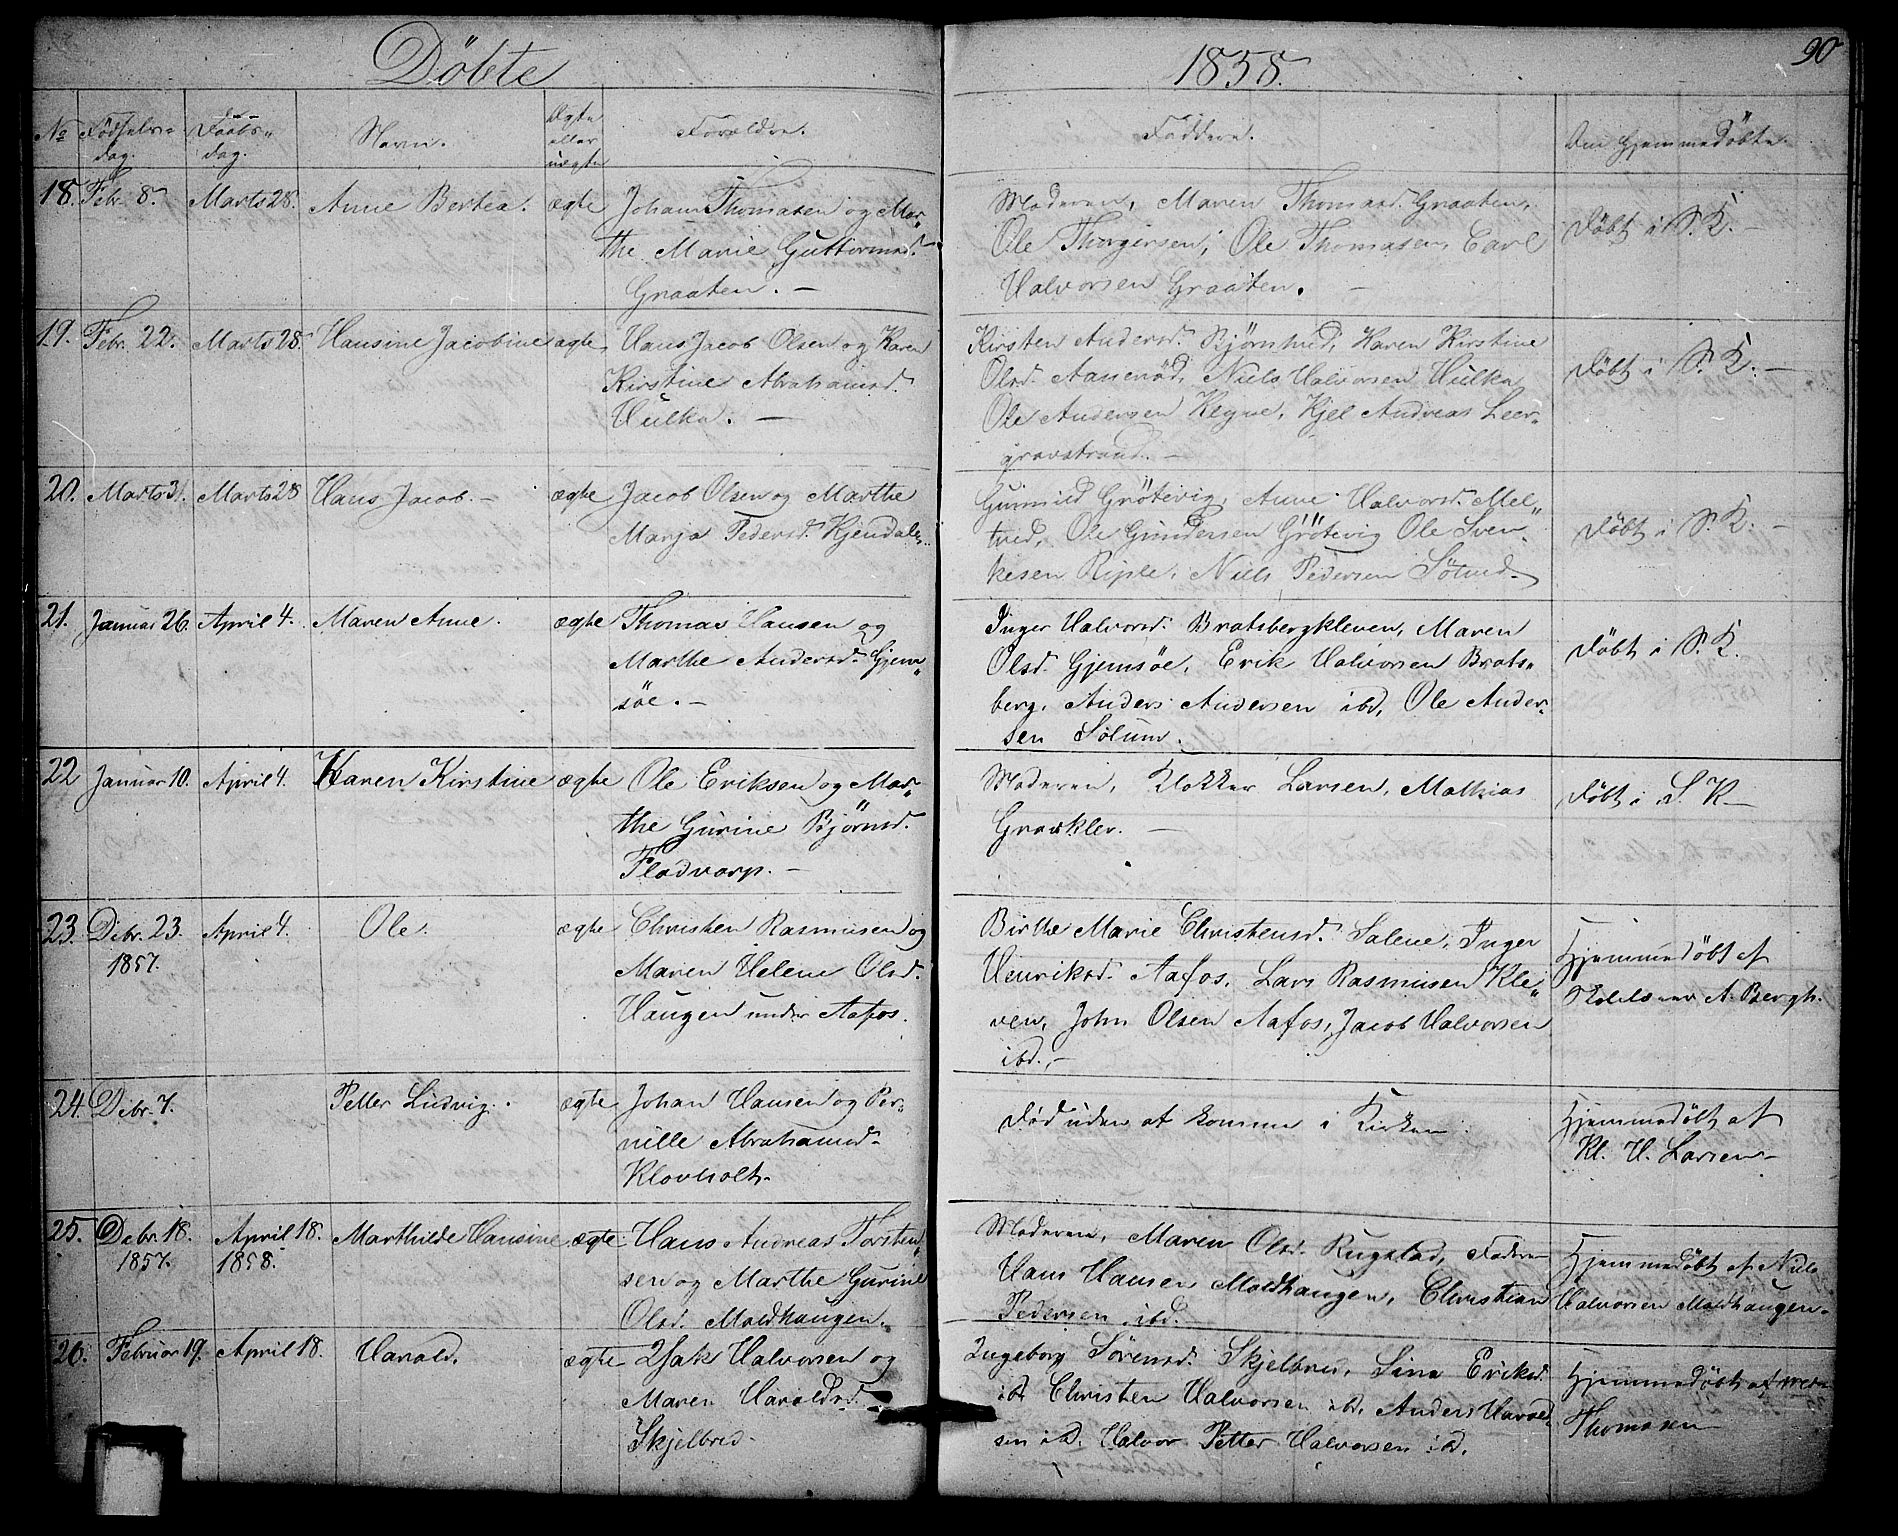 Döbte 1858. 90
No Födsels- dag. Daabs- dag. Navn. Ægte eller uægte Forældre. Faddere. Om hjemmedöbte.
18. Febr. 8. Marts 28. Anne Bertea. ægte Johan Thomasen og Mar-
the Marie Guttormsd.
Graaten. —
Moderen, Maren Thomasd. Graaten,
Ole Thorgersen, Ole Thomasen, Carl
Halvorsen Graaten. —
Döbt i S. K. —
19. Febr. 22. Marts 28. Hansine Jacobine ægte Hans Jacob Olsen og Karen
Kirstine Abrahamsd.
Hulka. —
Kirsten Andersd. Björnhud, Karen Kirstine
Olsd. Aaneröd, Niels Halvorsen Hulka
Ole Andersen Klyve, Kjel Andreas Leer-
gravstrand. —
Döbt i S. K. —
20. Marts 3. Marts 28 Hans Jacob. — ægte Jacob Olsen og Marthe
Marja Pedersd. Kjendale
Gunnild Grötevig, Anne Halvorsd. Mel-
tved, Ole Gundersen Grötevig Ole Sven-
kesen Riple, Niels Pedersen Sötved.
Döbt i S. K. —
21. Januar 26. April 4. Maren Anne. ægte Thomas Hansen og
Marthe Andersd. Gjem-
söe. —
Inger Halvorsd. Bratsbergkleven, Maren
Olsd. Gjemsöe, Erik Halvorsen Brats-
berg, Anders Andersen ibd, Ole Ander-
sen Solum.
Döbt i S. K.
22 Januar 10. April 4. Karen Kirstine ægte Ole Eriksen og Mar-
the Gurine Björnsd.
Fladvarp. —
Moderen, Klokker Larsen, Mathias
Gravklev. —
Döbt i S. K —
23. Dcbr. 23. 1857. April 4. Ole. ægte Christen Rasmusen og
Maren Helene Olsd.
Haugen under Aafos.
Birthe Marie Christensd. Salene, Inger
Henriksd. Aafos, Lars Rasmusen Kle-
ven, John Olsen Aafos, Jacob Halvorsen
ibd. —
Hjemmedöbt af
Skolelærer A. Bergh.
24. Dcbr. 7. Petter Ludvig. ægte Johan Hansen og Per-
nille Abrahamsd.
Klovholt.
Död uden at komme i Kirken
Hjemmedöbt af
Kl. H. Larsen —
25. Dcbr. 18. 1857. April 18. 1858. Marthilde Hansine ægte Hans Andreas Torsten-
sen og Marthe Gurine
Olsd. Moldhaugen.
Moderen, Maren Olsd. Rugstad, Faderen
Hans Hansen Moldhaugen, Christian
Pedersen ibd. —
Hjemmedöbt af Niels
Halvorsen Moldhaugen.
26. Februar 19. April 18. Harald. ægte Isak Halvorsen og
Maren Haraldsd.
Skjelbred.
Ingeborg Sörensd. Skjelbred, Sina Eriksd.
ibd Christen Halvorsen ibd, Anders Harald-
sen ibd. Halvor Petter Halvorsen ibd.
Hjemmedöbt af
Thomasen